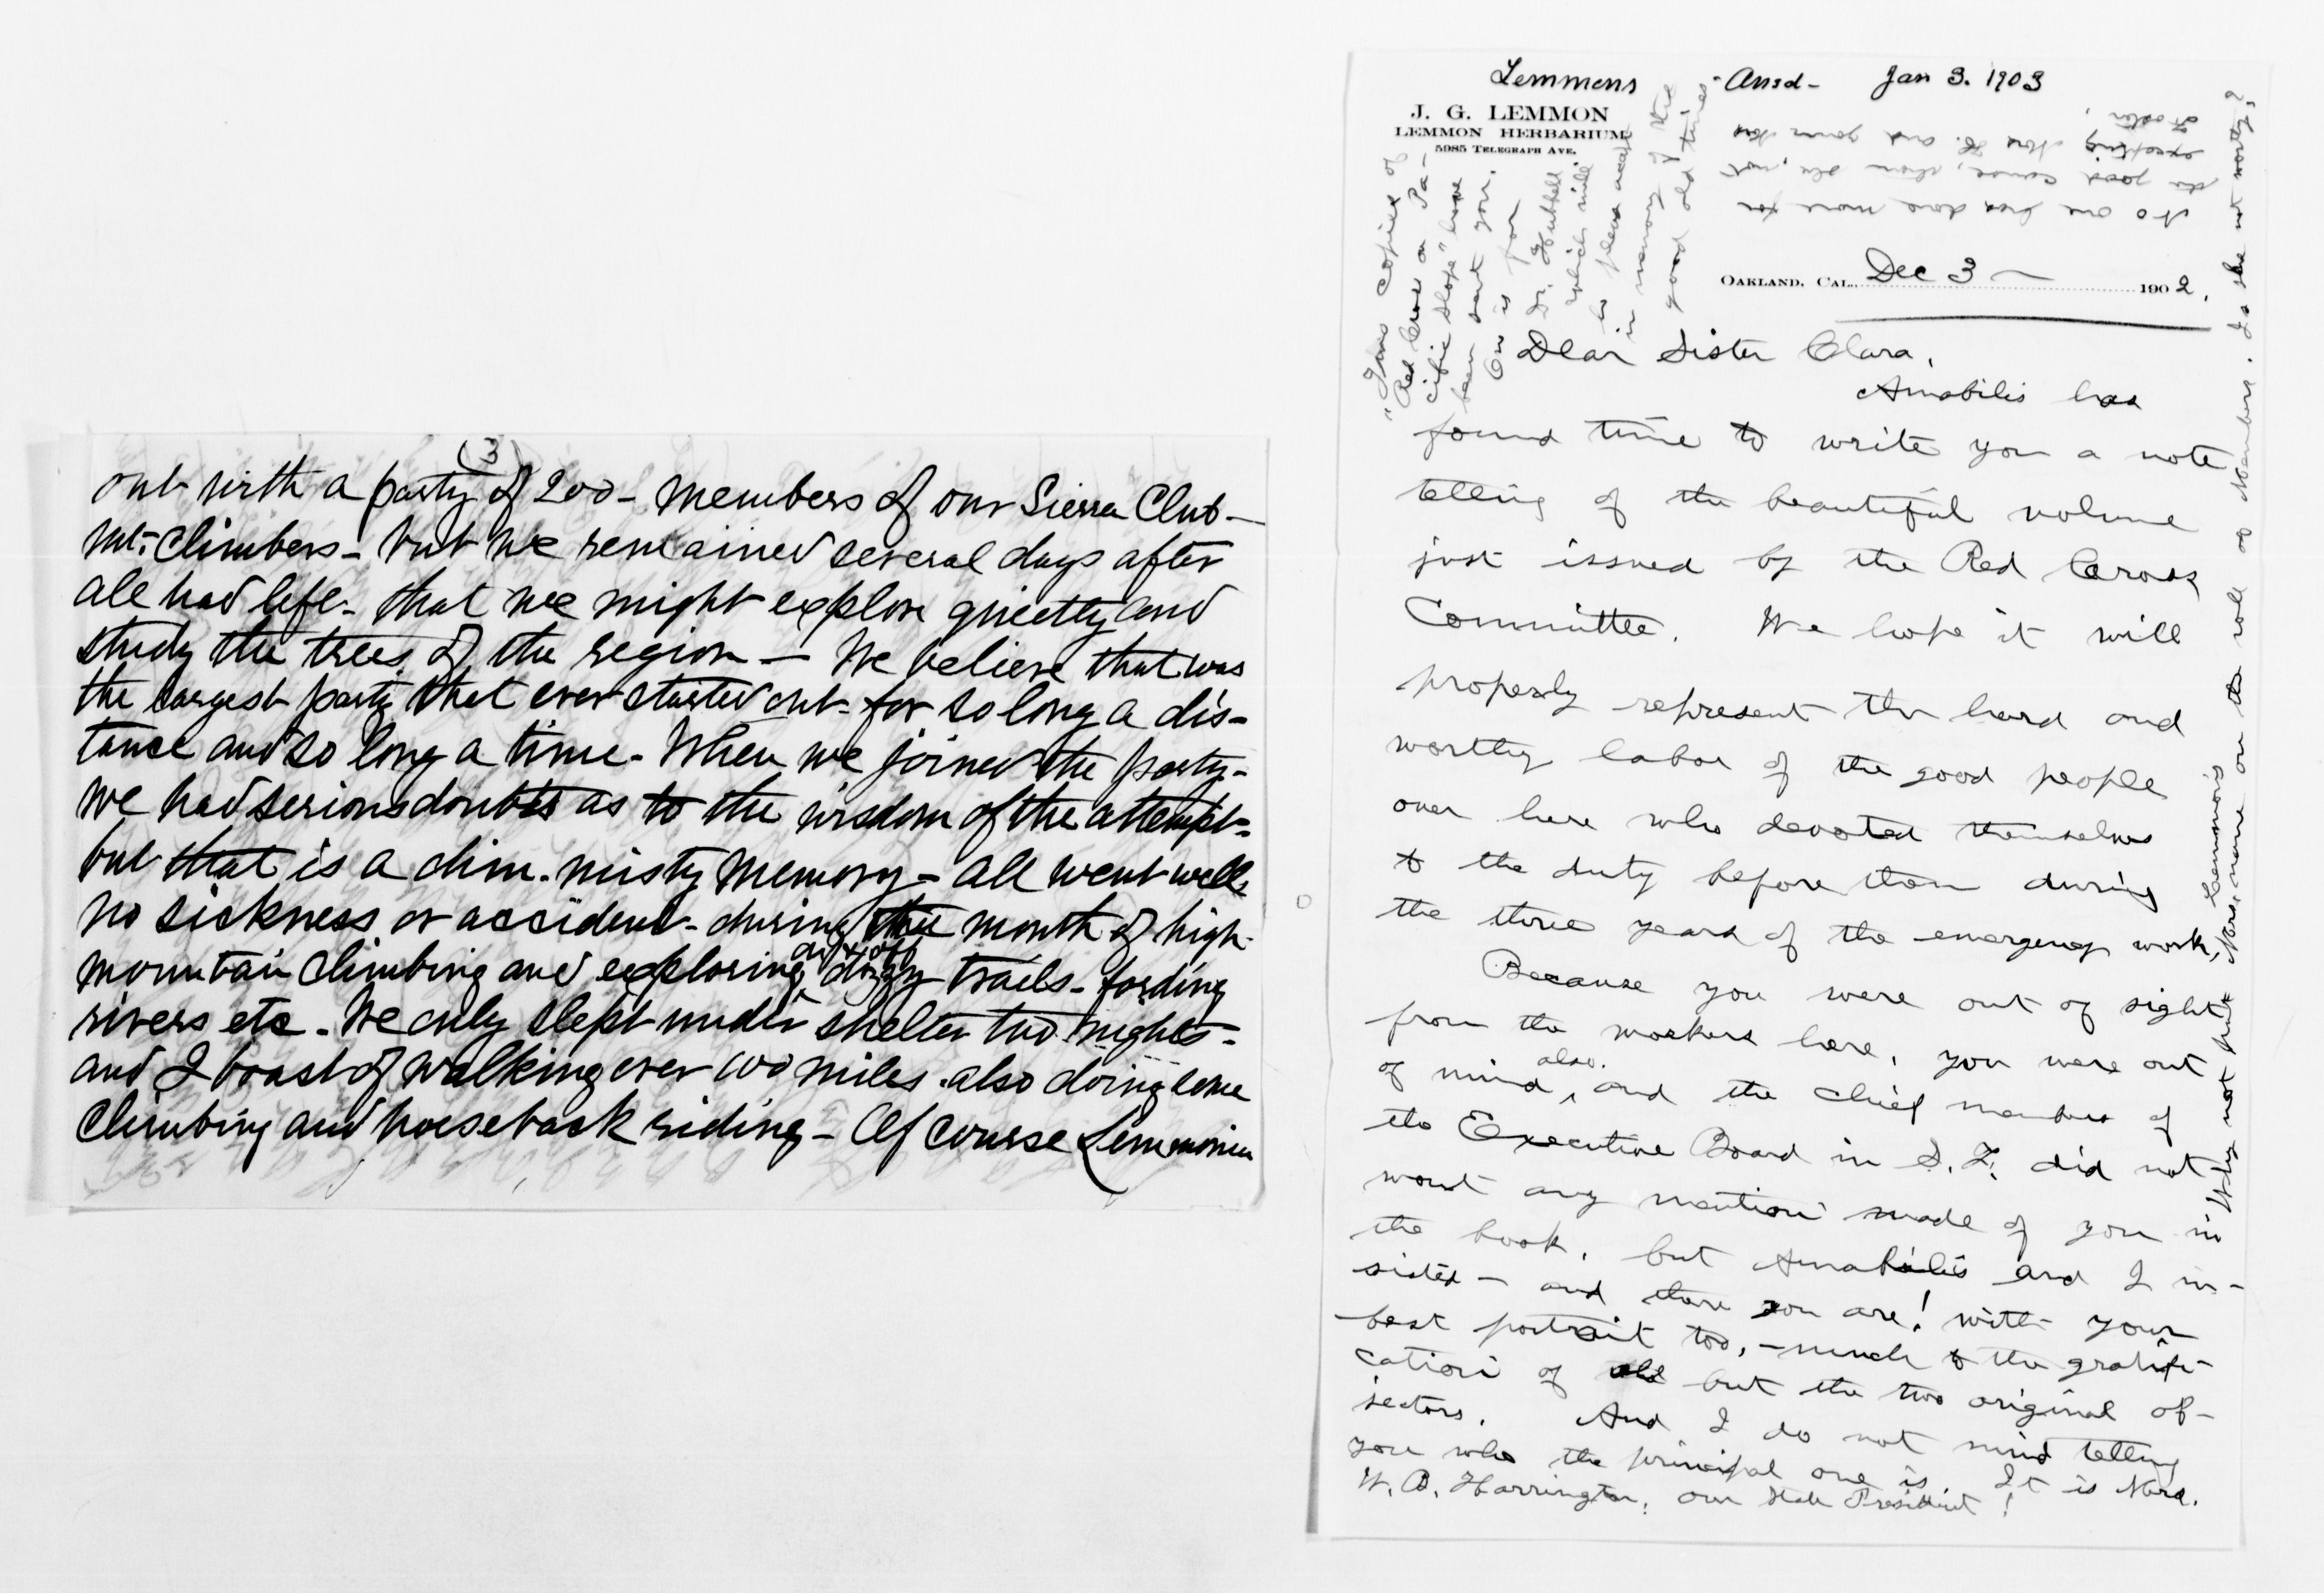 (3)
out with a party of 200 - members of our Sierra Club -
Mt. Climbers - but we remained several days after
all had left - that we might explore quietly and
study the trees of the region - We believe that was
the largest party that ever started out - for so long a dis-
tance and so long a time - When we joined the party -
we had serious doubts as to the wisdom of the attempt -
but that is a dim - misty memory - all went well,
no sickness or accident - during the month of high
mountain climbing and exploring, dizzy trails - fording
rivers etc - We only slept under shelter two nights -
and I boast of walking over 100 miles - also doing some
climbing and horseback riding - Of course Lemmonia
Lemmons - Ansd - Jan 3. 1903
J. G. LEMMON
LEMMON HERBARIUM
5985 TELEGRAPH AVE.
No one has done more for
the good cause, than she, not
excepting Mrs H. and
Foster.
OAKLAND, CAL. Dec 3 - 1902.
Two copies of
"Red Cross on Pa-
cific Slope" have
been sent you.
One is for
Dr. Hubbell
which will
he please accept
in memory of the
good old times
Dear Sister Clara,
Amabilis has
found time to write you a note
telling of the beautiful volume
just issued by the Red Cross
Committee. We hope it will
properly represent the hard and
worthy labor of the good people
over here who devoted themselves
to the duty before them during
the three years of the emergency work.
Because you were out of sight
from the workers here, you were out
of mind also, and the chief members of
the Executive Board in S. F. did not
want any mention made of you in
the book, but Amabilis and I in-
sisted - and there you are! with your
best portrait too, - much to the gratifi-
cation of all but the two original ob-
jectors. And I do not mind telling
you who the principal one is. It is Mrs.
W. B. Harrington, our State President!
Why not put Mrs. Lemmon's name on the roll of Members. Is she not worthy?